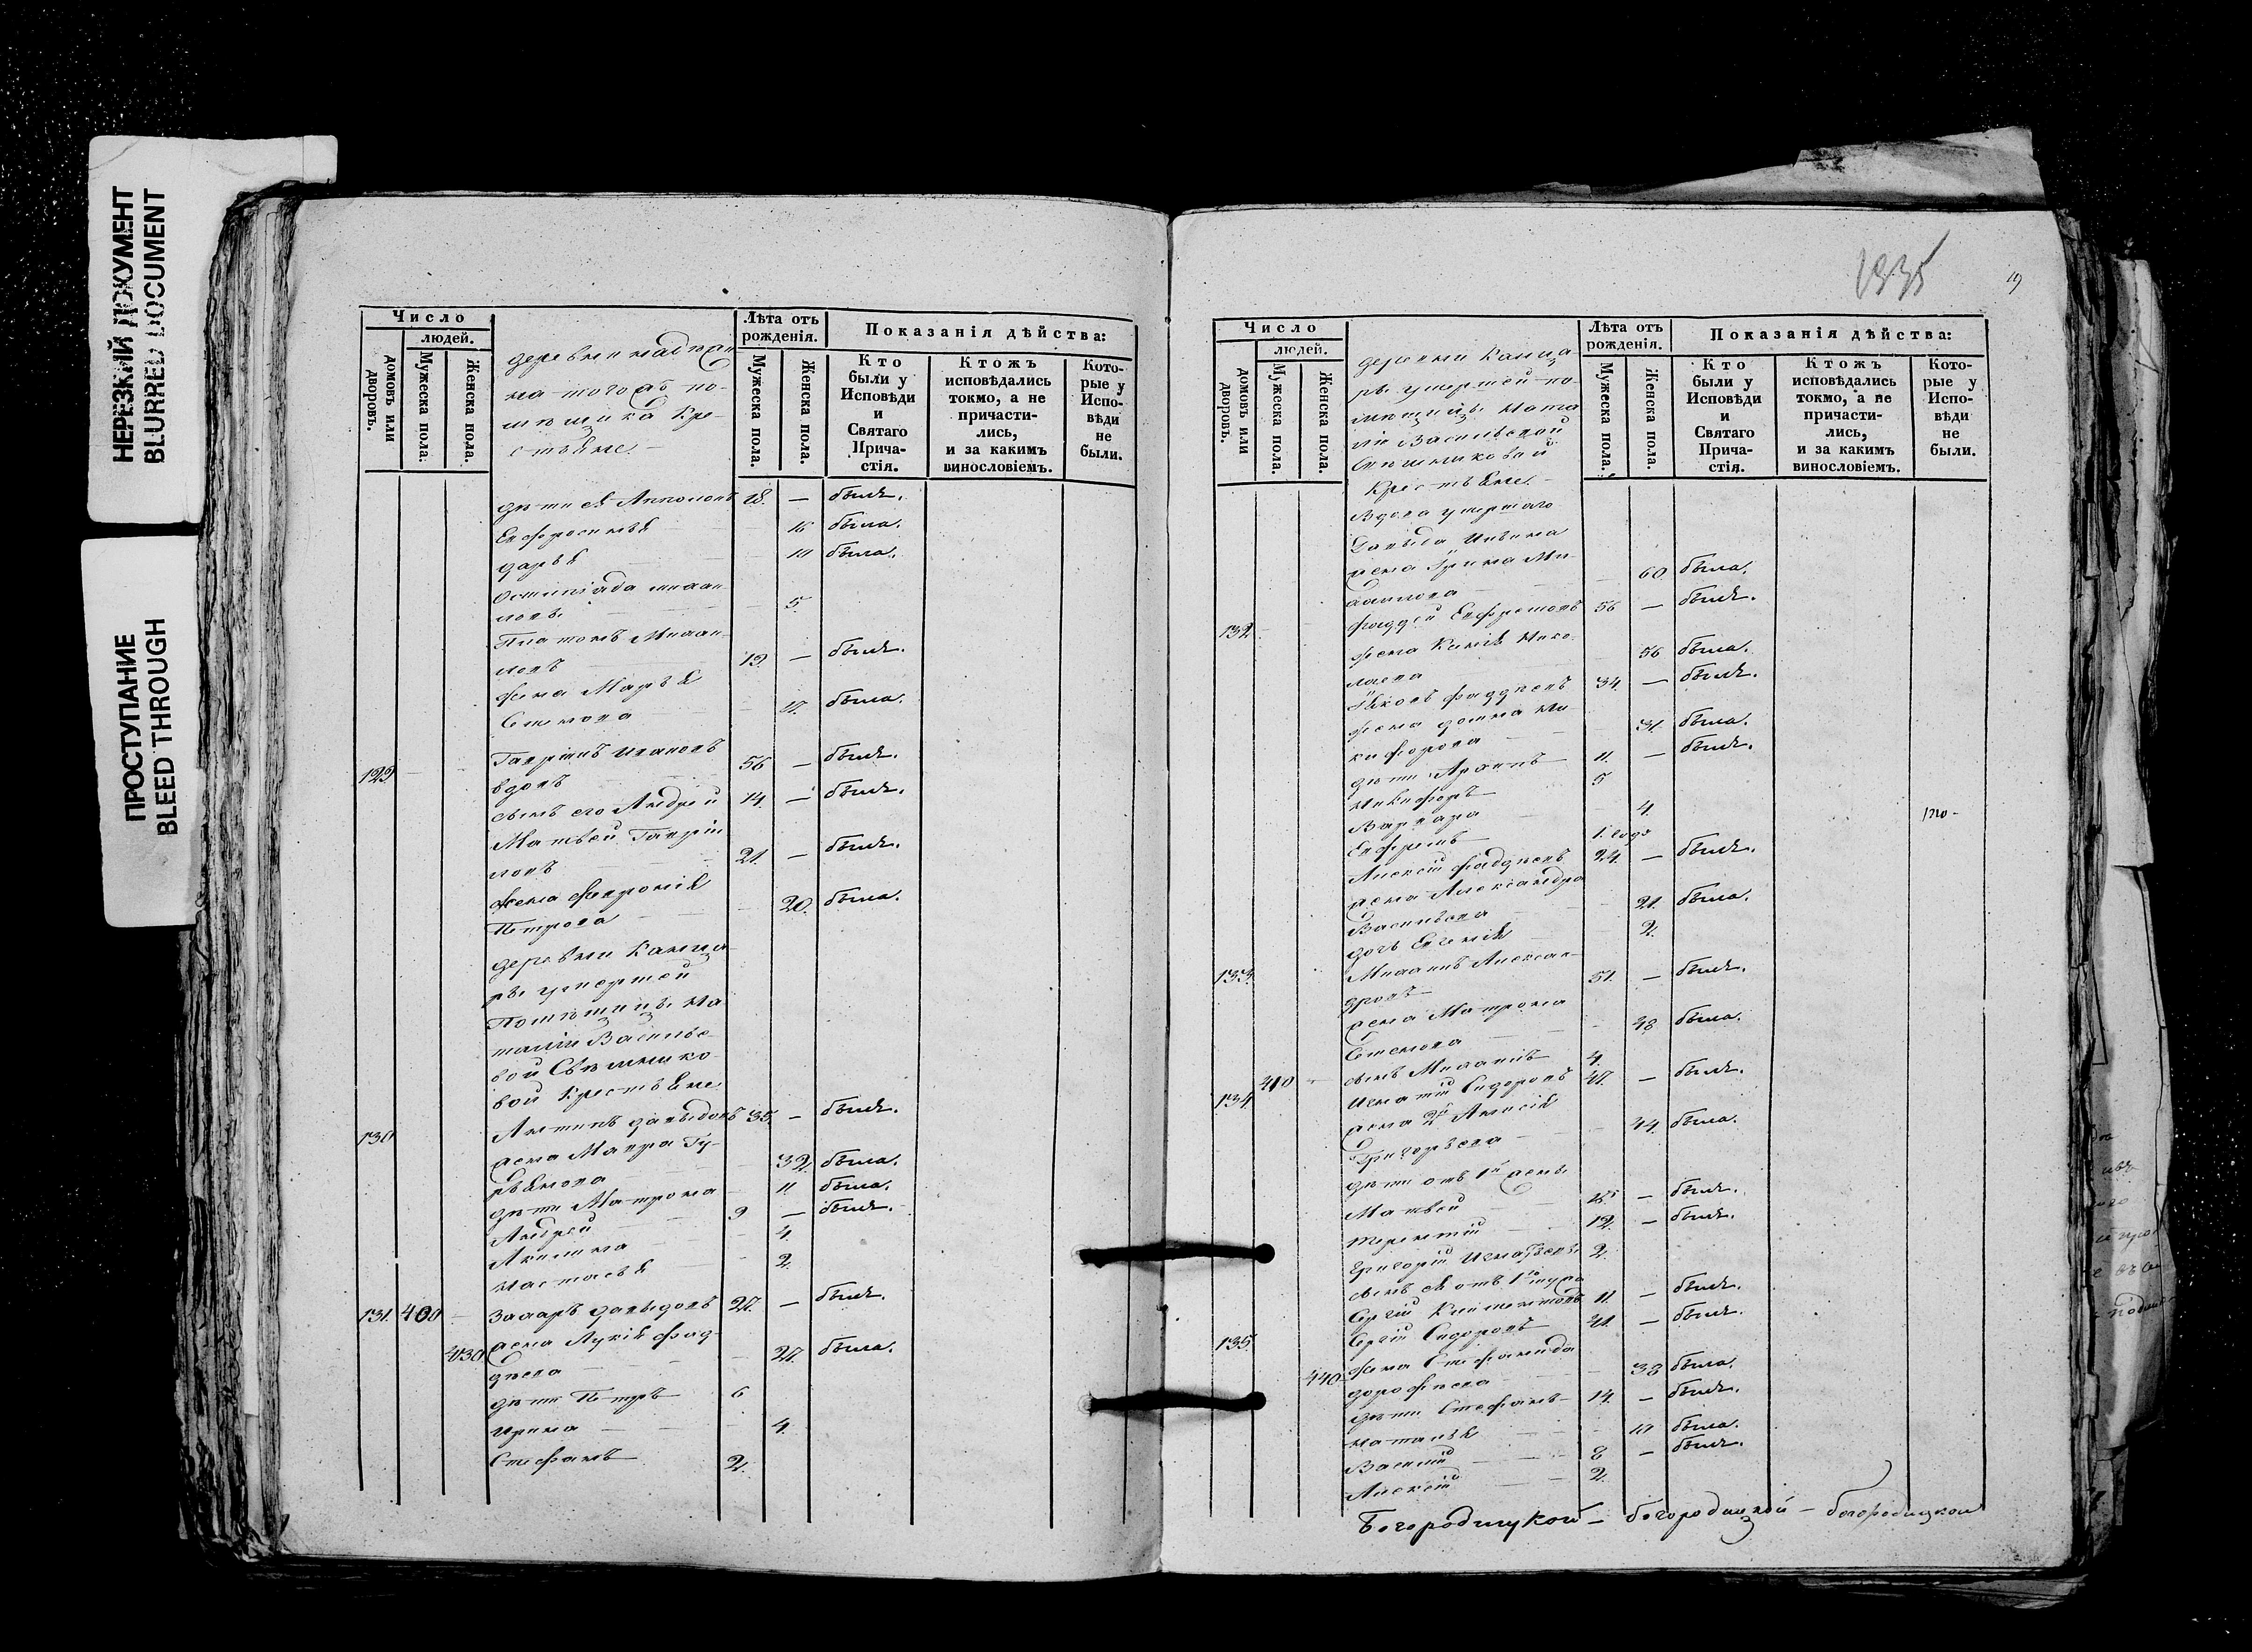 НЕРЕЗКИЙ ДОКУМЕНТ
BLURRED DOCUMENT
ПРОСТУПАНИЕ
BLEED THROUGH
Число
людей.
домовъ или дворовъ.
Мужеска пола.
Женска пола.
Лѣта отъ рожденія.
Мужеска пола.
Женска пола.
Показанія дѣйства:
Кто были у Исповѣди и Святаго Прича-стія.
Ктожъ исповѣдались токмо, а не причасти-лись, и за какимъ винословіемъ.
Кото-рые у Испо-вѣди не были.
деревни
помѣщика Кре-
стьяне.
18. — былъ.
Евфросинья 16 была.
Дарья 10 была.
5.
Платонъ
19. — былъ.
жена Марья
Семенова была.
Гавріилъ Ивановъ
129 вдовъ 56 — былъ.
сынъ его Андрей 14. — былъ.
Матвей Гавріи-
ловъ 21. — былъ.
жена Февронія
Петрова 20. была.
деревни
умершей
Помѣщицы На
таліи Василье-
вой
вой Крестьяне
130 Антипъ Давыдовъ 35. — былъ.
жена Мавра Гу-
рьянова 32. была.
дѣти Матрона 11. была.
Андрей 9 — былъ.
Акилина 4.
Настасья 2.
131. 400 Захаръ Давыдовъ 27. — былъ.
430 жена Лукія Фад-
дѣева 27. была.
дѣти Петръ 6
Ирина 4.
Стефанъ 2.
1335
19
Число
людей.
домовъ или дворовъ.
Мужеска пола.
Женска пола.
Лѣта отъ рожденія.
Мужеска пола.
Женска пола.
Показанія дѣйства:
Кто были у Исповѣди и Святаго Прича-стія.
Ктожъ исповѣдались токмо, а не причасти-лись, и за какимъ винословіемъ.
Кото-рые у Испо-вѣди не были.
деревни
умершей по-
мѣщицы Ната
ліи Васильевой
Крестьяне.
Вдова умершаго
Давыда
жена Ирина Ми-
хайлова 60. была.
132 Фаддей Евфремовъ 56 — былъ.
жена Ксенія Нико-
лаева 56 была.
Яковъ Фаддѣевъ 34. — былъ.
жена Домна Ни
кифорова 31. была.
дѣти Архипъ 11. — былъ.
Никифоръ 5
Варвара 4.
Евфремъ 1. года
Алексій Фаддѣевъ 24. — былъ.
жена Александра
Васильева 21. была.
дочь Евгенія 2.
133. Михаилъ Алексан-
дровъ 51. — былъ.
жена Матрона
Семенова 48 была.
410 сынъ Михаилъ 4.
134 Игнатій Сидоровъ 47. — былъ.
жена 2я Анисія
Григорьева 44. была.
дѣти отъ 1й жены
Матвей — былъ.
Терентій 12. — былъ.
Григорій Игнатьевъ 2.
сынъ ея отъ 1го мужа
Сергій Климентовъ 11. — былъ.
135. Сергій Сидоровъ 41. — былъ.
440 жена Стефанида
Дорофѣева 38 была.
дѣти Стефанъ 14. — былъ.
Наталья 10 была.
Василій 8 — былъ.
Алексій 2.
Богородицкой — богородицкой — богородицкой